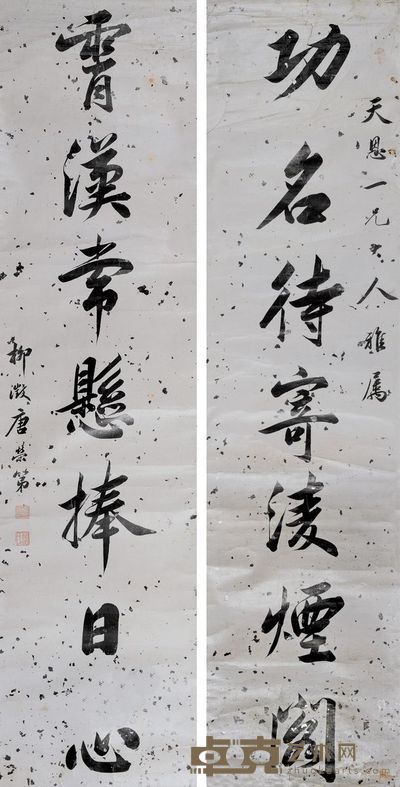 天恩一兄大人雅屬
功名待寄淩煙閣
霄漢常懸捧日心
柳 唐榮第
卓克艺术网